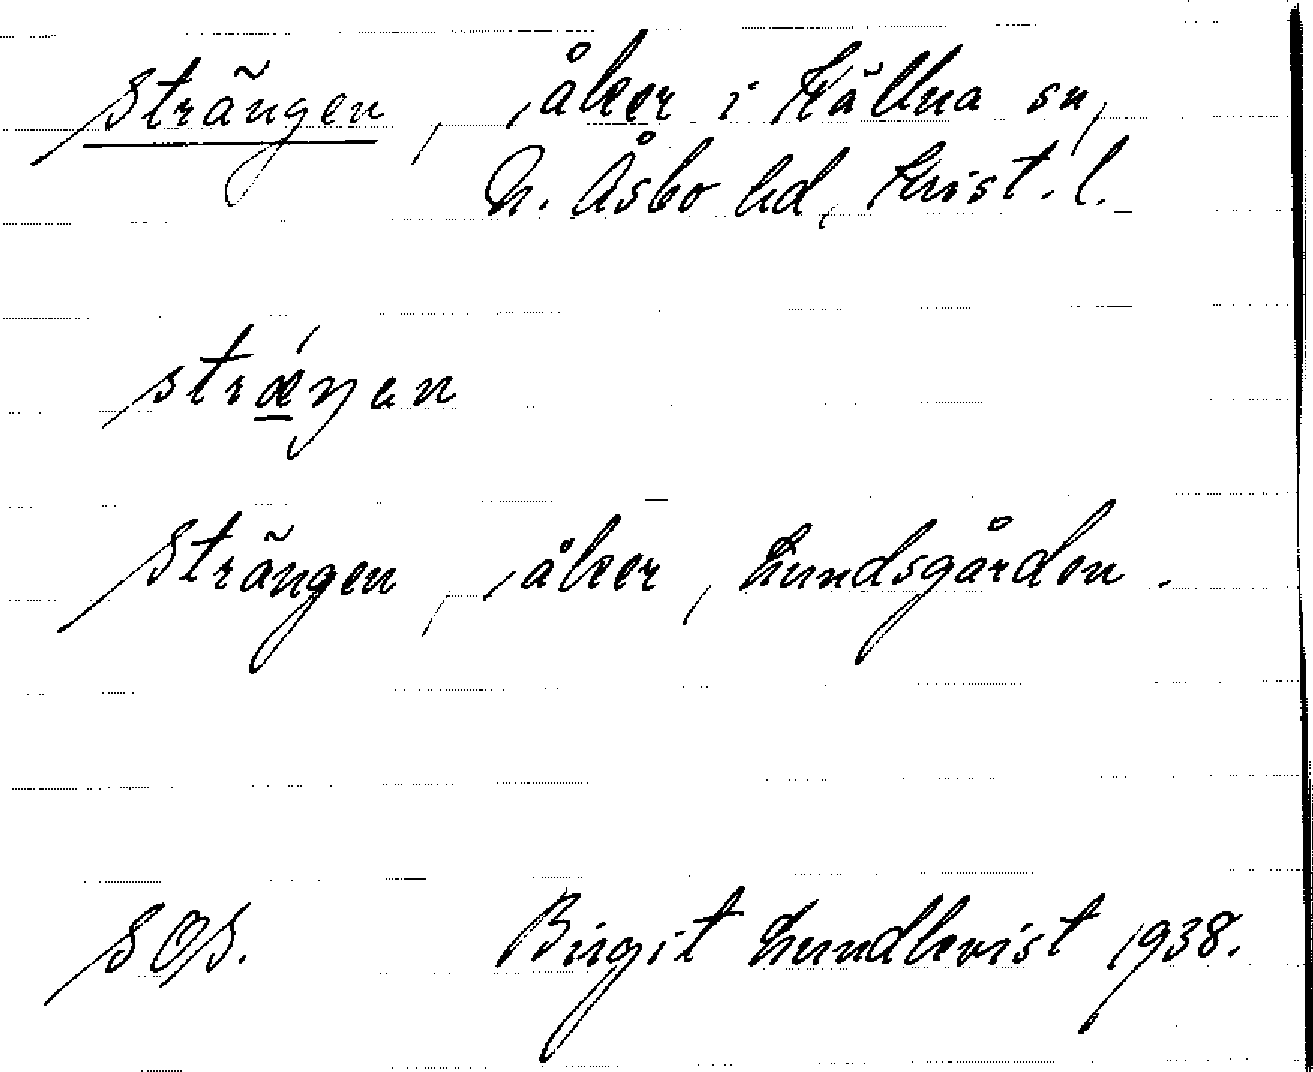 Strängen, åker i Källna sn,
N. Åsbo hd, Krist. l.
strǽ̲ŋan
Strängen, åker, Lundsgården.
SOS. Birgit Lundkvist 1938.